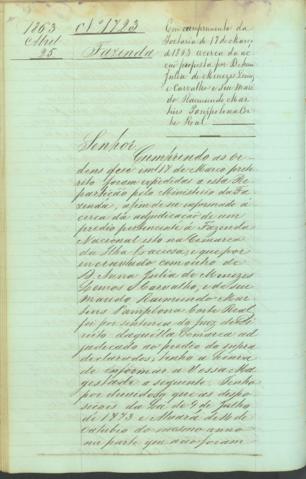 1863
Abril
25
Nº 1723
Fazenda
Em cumprimento da
Portaria de 17 de Março
de 1863 acerca da ac
proposta por D.
Julia de Menezes Lemos
e Carvalho e seu Mari
do Raimundo Mar
tins Pamplona Cor
te Real
Senhor
Cumprindo as or
dens que em 17 de Março prete
rito foram expedidas a esta Re
partição pelo Ministerio da Fa
zenda, afim de ser informado á
cerca da adjudicação de um
predio pertencente á Fazenda
Nacional sito na Comarca
da Ilha Graciosa, e que por
encravado em outro de
D. Anna Julia de Menezes
Lemos e Carvalho, e de seu
Marido Raimundo Mar
tins Pamplona Corte Real,
foi por sentença do Juiz de Di
reito daquella Comarca ad
judicado ao predio dos supra
declarados, tenho a honra
de informar a Vossa Ma
gestade o seguinte. Tenho
por duvidoso que as dispo
sições da Lei de 9 de Julho
de 1773 e Alvará de 14 de
Outubro do mesmo anno
na parte que não foram